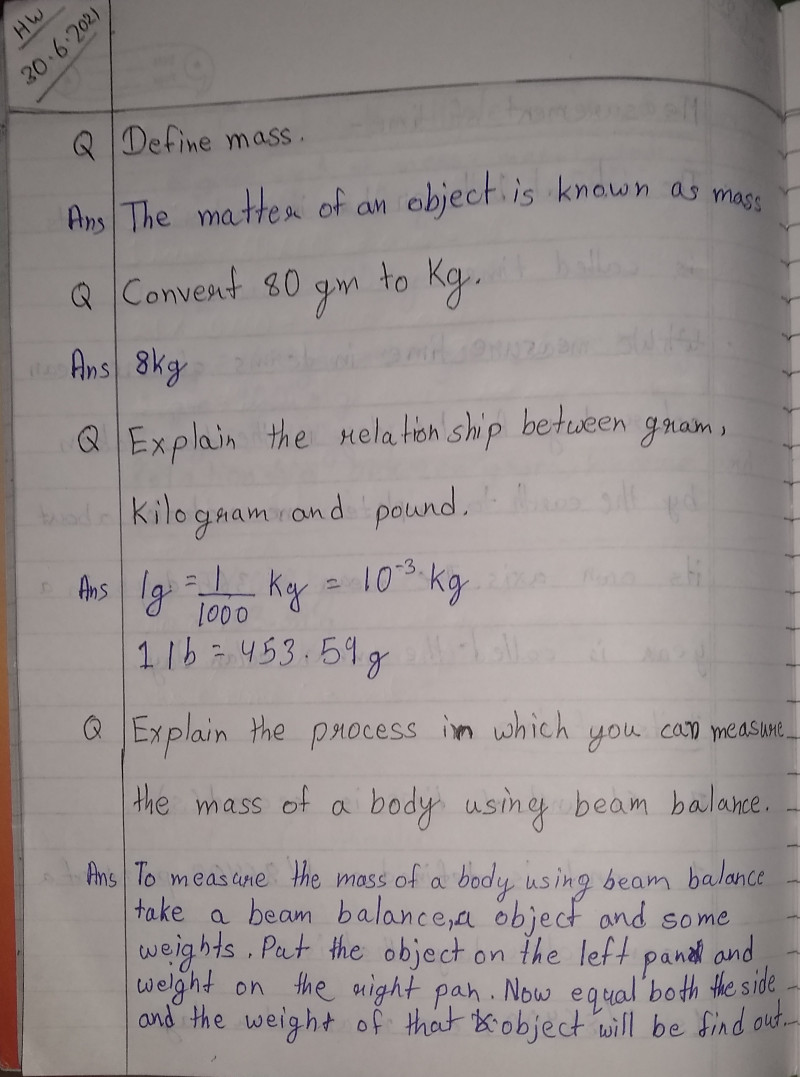 HW
30.6.2021
Q Define mass.
Ans The matter of an object is known as mass
Q Convert 80 gm to Kg.
Ans 8kg
Q Explain the relationship between gram,
Kilogram and pound.
Ans 1g = 1/1000 Kg = 10⁻³ Kg
1 lb = 453.59 g
Q Explain the process in which you can measure
the mass of a body using beam balance.
Ans To measure the mass of a body using beam balance
take a beam balance, a object and some
weights. Put the object on the left pan and
weight on the right pan. Now equal both the side
and the weight of that object will be find out.